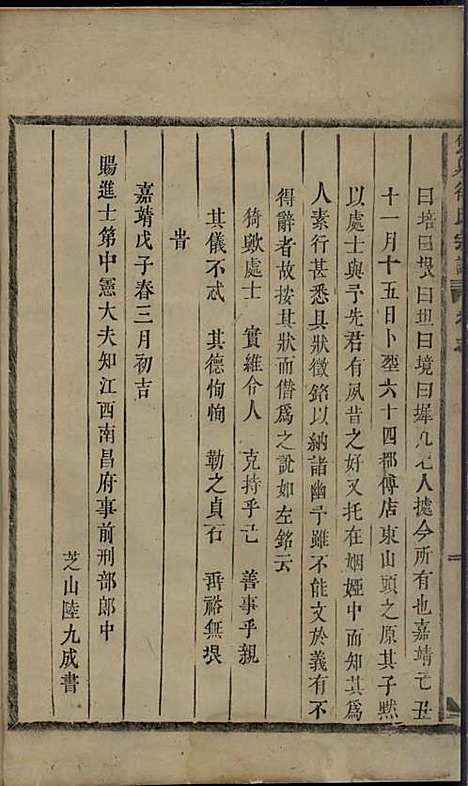 曰培曰垠曰坦曰境曰墀凡九人據今所有也嘉靖己丑
十一月十五日卜塟六十四都傅店東山頭之原其子熙
以處士與予先君有夙昔之好又托在姻婭中而知其爲
人素行甚悉具狀徵銘以納諸幽予雖不能文於義有不
得辭者故按其狀而僭爲之說如左銘云
猗歟處士　實維令人　克持乎己　善事乎親
其儀不忒　其德恂恂　勒之貞石　垂裕無垠
旹
嘉靖戊子春三月初吉
賜進士第中憲大夫知江西南昌府事前刑部郎中
芝山陸九成書